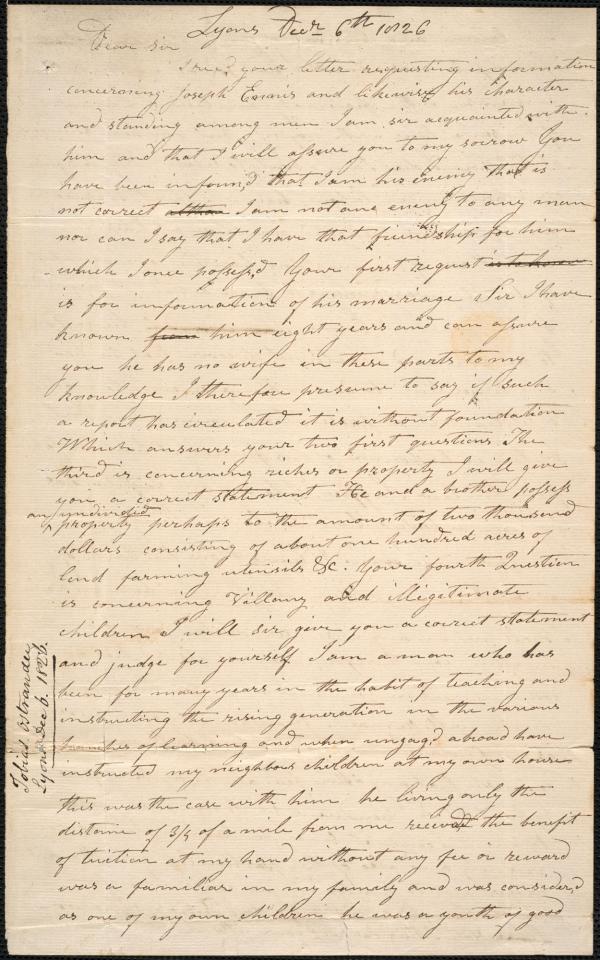 Lyons Decr 6th 1826
Dear Sir
I recd your letter requesting information
concerning Joseph Ennis and likewise his character
and standing among men I am sir acquainted with
him and that I will assure you to my sorrow You
have been infound that I am his enemy that is
not correct altho I am not ane enemy to any man
nor can I say that I have that friendship for him
which I once possess,d Your first request is to know
is for information of his marriage Sir I have
known from him eight years and can assure
you he has no wife in these parts to my
knowledge I therefore presume to say if such
a report has circulated it is without foundation
Which answers your two first questions The
third is concerning riches or property I will give
you a correct statement He and a brother possess
an undivided
property perhaps to the amount of two thousand
dollars consisting of about one hundred acres of
land farming utensils &c. Your fourth Question
is concerning Villany and illegitimate
children I will sir give you a correct statement
and judge for yourself I am a man who has
been for many years in the habit of teaching and
instructing the rising generation in the various
branches of learning and when ungag,d abroad have
instructed my neighbors children at my own house
this was the case with him he living only the
distance of 3/4 of a mile from me received the benefit
of tuition at my hand without any fee or reward
was a familiar in my family and was consider,d
as one of my own children he was a youth of good
Tobias Ostrander
Lyons Dec 6. 1826.